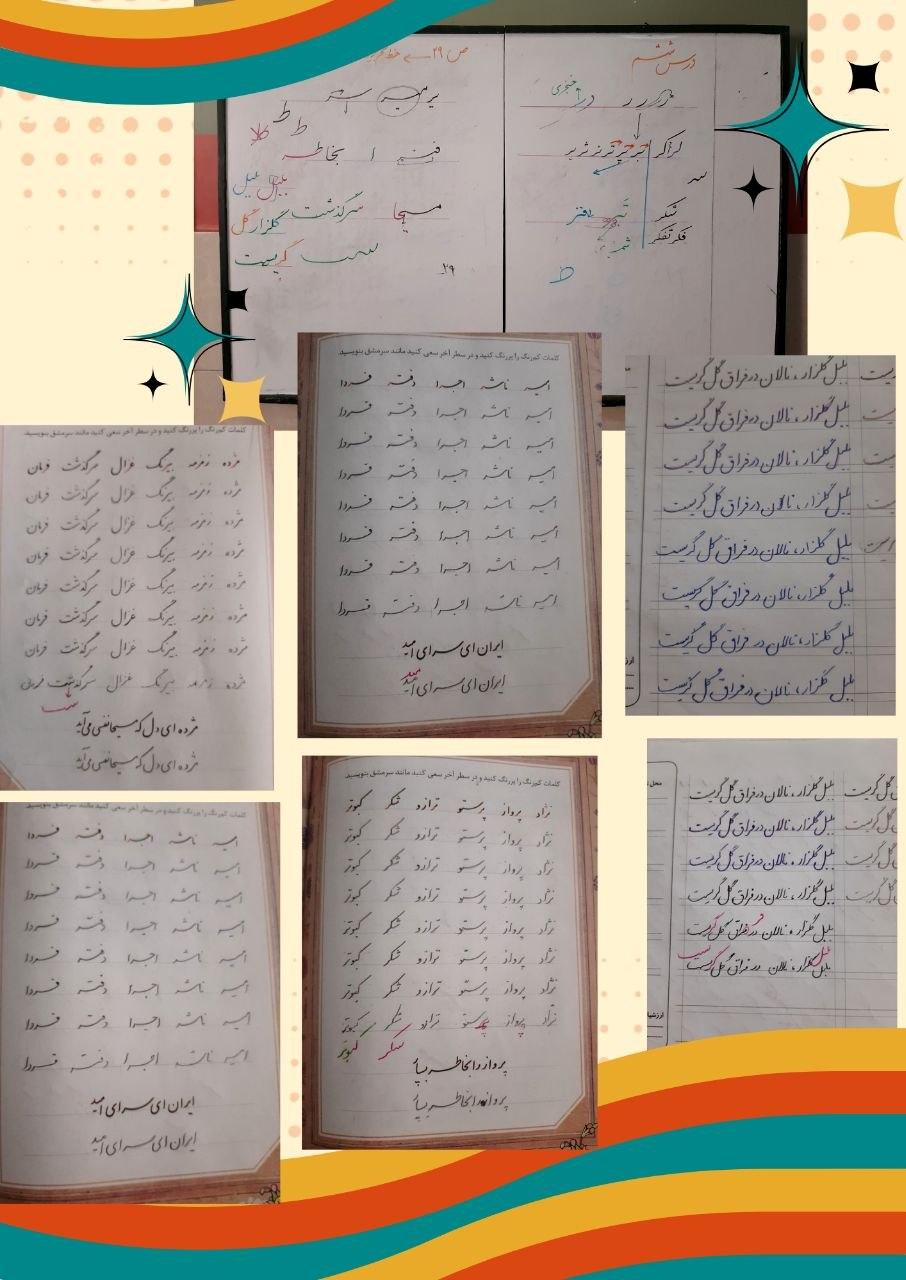 درس ششم
د ذ ر ز و
در آ خنجری
گر اگر
تر نر ژ بر
سر
شکر
دفتر
فکر تفکر
ثمر
ط
ص ۲۹
ط ط
کلا
ا بخاطر
بلبل بلبل
مسیحا سرگذشت گلزار گل
ست گریست
۲۹
کلمات کم‌رنگ را پررنگ کنید و در سطر آخر سعی کنید مانند سرمشق بنویسید.
امید ناشر اجرا دفتر فردا
امید ناشر اجرا دفتر فردا
امید ناشر اجرا دفتر فردا
امید ناشر اجرا دفتر فردا
امید ناشر اجرا دفتر فردا
امید ناشر اجرا دفتر فردا
امید ناشر اجرا دفتر فردا
امید ناشر اجرا دفتر فردا
ایران ای سرای امید
ایران ای سرای امید
بلبل گلزار، نالان در فراق گل گریست
بلبل گلزار، نالان در فراق گل گریست
بلبل گلزار، نالان در فراق گل گریست
بلبل گلزار، نالان در فراق گل گریست
بلبل گلزار، نالان در فراق گل گریست
بلبل گلزار، نالان در فراق گل گریست
بلبل گلزار، نالان در فراق گل گریست
بلبل گلزار، نالان در فراق گل گریست
کلمات کم‌رنگ را پررنگ کنید و در سطر آخر سعی کنید مانند سرمشق بنویسید.
مژده زمزمه بیرنگ غزال سرگذشت فرمان
مژده زمزمه بیرنگ غزال سرگذشت فرمان
مژده زمزمه بیرنگ غزال سرگذشت فرمان
مژده زمزمه بیرنگ غزال سرگذشت فرمان
مژده زمزمه بیرنگ غزال سرگذشت فرمان
مژده زمزمه بیرنگ غزال سرگذشت فرمان
مژده زمزمه بیرنگ غزال سرگذشت فرمان
مژده زمزمه بیرنگ غزال سرگذشت فرمان
ست
مژده ای دل که مسیحا نفسی می‌آید
مژده ای دل که مسیحا نفسی می‌آید
کلمات کم‌رنگ را پررنگ کنید و در سطر آخر سعی کنید مانند سرمشق بنویسید.
نژاد پرواز پرستو ترازو شکر کبوتر
نژاد پرواز پرستو ترازو شکر کبوتر
نژاد پرواز پرستو ترازو شکر کبوتر
نژاد پرواز پرستو ترازو شکر کبوتر
نژاد پرواز پرستو ترازو شکر کبوتر
نژاد پرواز پرستو ترازو شکر کبوتر
نژاد پرواز پرستو ترازو شکر کبوتر
نژاد پرواز پرستو ترازو شکر کبوتر
شکر کبوتر
پرواز را بخاطر بسپار
پرواز را بخاطر بسپار
بلبل گلزار، نالان در فراق گل گریست
بلبل گلزار، نالان در فراق گل گریست
بلبل گلزار، نالان در فراق گل گریست
بلبل گلزار، نالان در فراق گل گریست
بلبل گلزار، نالان در فراق گل گریست
بلبل گلزار، نالان در فراق گل گریست
کلمات کم‌رنگ را پررنگ کنید و در سطر آخر سعی کنید مانند سرمشق بنویسید.
امید ناشر اجرا دفتر فردا
امید ناشر اجرا دفتر فردا
امید ناشر اجرا دفتر فردا
امید ناشر اجرا دفتر فردا
امید ناشر اجرا دفتر فردا
امید ناشر اجرا دفتر فردا
امید ناشر اجرا دفتر فردا
امید ناشر اجرا دفتر فردا
ایران ای سرای امید
ایران ای سرای امید